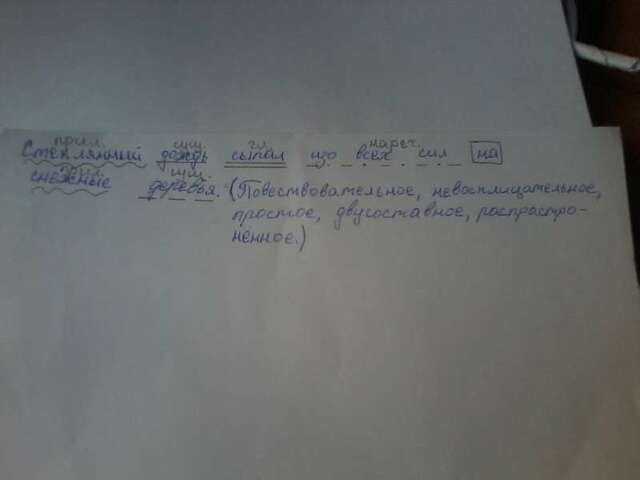 прил. сущ. гл. нареч.
Стеклянный дождь сыпал изо всех сил на
прил. сущ.
снежные деревья. (Повествовательное, невосклицательное,
простое, двусоставное, распрастро-
ненное.)